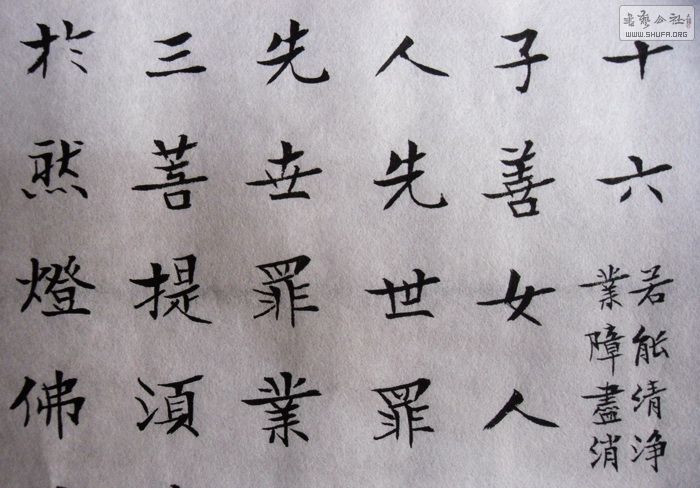 十六
若能清净
業障盡消
子善女人
人先世罪
先世罪業
三菩提須
於然燈佛
書藝公社
WWW.SHUFA.ORG